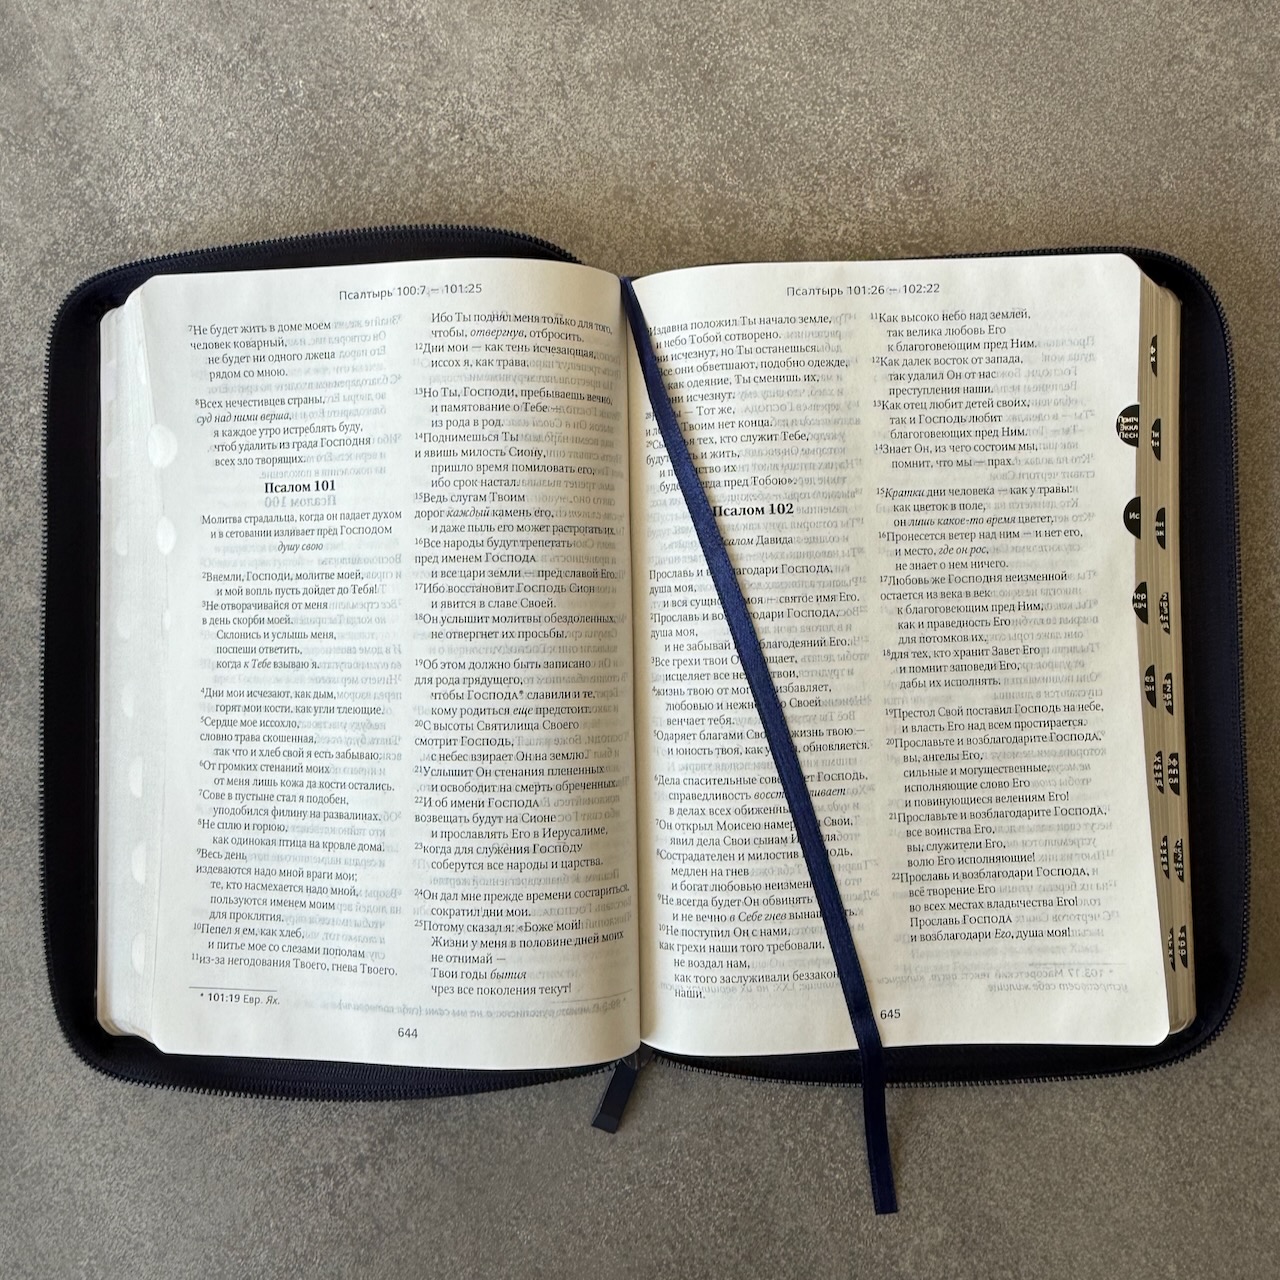 Псалтырь 100:7 — 101:25
⁷Не будет жить в доме моем
человек коварный,
не будет ни одного лжеца
рядом со мною.
⁸Всех нечестивцев страны,
суд над ними верша,
я каждое утро истреблять буду,
чтоб удалить из града Господня
всех зло творящих.
Псалом 101
Молитва страдальца, когда он падает духом
и в сетовании изливает пред Господом
душу свою
²Внемли, Господи, молитве моей,
и мой вопль пусть дойдет до Тебя!
³Не отворачивайся от меня
в день скорби моей.
Склонись и услышь меня,
поспеши ответить,
когда к Тебе взываю я.
⁴Дни мои исчезают, как дым,
горят мои кости, как угли тлеющие.
⁵Сердце мое иссохло,
словно трава скошенная,
так что и хлеб свой я есть забываю;
⁶От громких стенаний моих
от меня лишь кожа да кости остались.
⁷Сове в пустыне стал я подобен,
уподобился филину на развалинах.
⁸Не сплю и горюю,
как одинокая птица на кровле дома.
⁹Весь день
издеваются надо мной враги мои;
те, кто насмехается надо мной,
пользуются именем моим
для проклятия.
¹⁰Пепел я ем, как хлеб,
и питье мое со слезами пополам
¹¹из-за негодования Твоего, гнева Твоего.
* 101:19 Евр. Ях.
Ибо Ты поднял меня только для того,
чтобы, отвергнув, отбросить.
¹²Дни мои — как тень исчезающая,
иссох я, как трава.
¹³Но Ты, Господи, пребываешь вечно,
и памятование о Тебе —
из рода в род.
¹⁴Поднимешься Ты
и явишь милость Сиону,
пришло время помиловать его,
ибо срок настал.
¹⁵Ведь слугам Твоим
дорог каждый камень его,
и даже пыль его может растрогать их.
¹⁶Все народы будут трепетать
пред именем Господа
и все цари земли — пред славой Его.
¹⁷Ибо восстановит Господь Сион
и явится в славе Своей.
¹⁸Он услышит молитвы обездоленных,
не отвергнет их просьбы.
¹⁹Об этом должно быть записано
для рода грядущего,
чтобы Господа* славили и те,
кому родиться еще предстоит.
²⁰С высоты Святилища Своего
смотрит Господь,
с небес взирает Он на землю.
²¹Услышит Он стенания плененных
и освободит на смерть обреченных.
²²И об имени Господа
возвещать будут на Сионе
и прославлять Его в Иерусалиме,
²³когда для служения Господу
соберутся все народы и царства.
²⁴Он дал мне прежде времени состариться,
сократил дни мои.
²⁵Потому сказал я: «Боже мой!
Жизни у меня в половине дней моих
не отнимай —
Твои годы бытия
чрез все поколения текут!
644
Псалтырь 101:26 — 102:22
Издавна положил Ты начало земле,
и небо Тобой сотворено.
они исчезнут, но Ты останешься.
Все они обветшают, подобно одежде,
как одеяние, Ты сменишь их,
они исчезнут.
— Тот же,
Твоим нет конца.
тех, кто служит Тебе,
и жить,
их
пред Тобою».
Псалом 102
Псалом Давида
Прославь и возблагодари Господа,
душа моя,
и вся сущность моя — святое имя Его.
²Прославь и возблагодари Господа,
душа моя,
и не забывай благодеяний Его:
³Все грехи твои Он прощает,
исцеляет все твои,
⁴жизнь твою от избавляет,
любовью и Своей
венчает тебя.
⁵Одаряет благами жизнь твою —
и юность твоя, как у, обновляется.
⁶Дела спасительные совершает Господь,
справедливость восстанавливает
в делах всех обиженных
⁷Он открыл Моисею Свои,
явил дела Свои сынам Израиля.
⁸Сострадателен и милостив Господь,
медлен на гнев
и богат любовью неизменной
⁹Не всегда будет Он обвинять
и не вечно в Себе гнев
¹⁰Не поступил Он с нами,
как грехи наши того требовали,
не воздал нам,
как того заслуживали беззакония
наши.
¹¹Как высоко небо над землей,
так велика любовь Его
к благоговеющим пред Ним.
¹²Как далек восток от запада,
так удалил Он от нас
преступления наши.
¹³Как отец любит детей своих,
так и Господь любит
благоговеющих пред Ним.
¹⁴Знает Он, из чего состоим мы,
помнит, что мы — прах.
¹⁵Кратки дни человека — как у травы:
как цветок в поле,
он лишь какое-то время цветет,
¹⁶Пронесется ветер над ним — и нет его,
и место, где он рос,
не знает о нем ничего.
¹⁷Любовь же Господня неизменной
остается из века в век
к благоговеющим пред Ним,
как и праведность Его
для потомков их,
¹⁸для тех, кто хранит Завет Его
и помнит заповеди Его,
дабы их исполнять.
¹⁹Престол Свой поставил Господь на небе,
и власть Его над всем простирается.
²⁰Прославьте и возблагодарите Господа,
вы, ангелы Его,
сильные и могущественные,
исполняющие слово Его
и повинующиеся велениям Его!
²¹Прославьте и возблагодарите Господа,
все воинства Его,
вы, служители Его,
волю Его исполняющие!
²²Прославь и возблагодари Господа,
всё творение Его
во всех местах владычества Его!
Прославь Господа
и возблагодари Его, душа моя!
645
Притч
Эккл
Песн
Ис